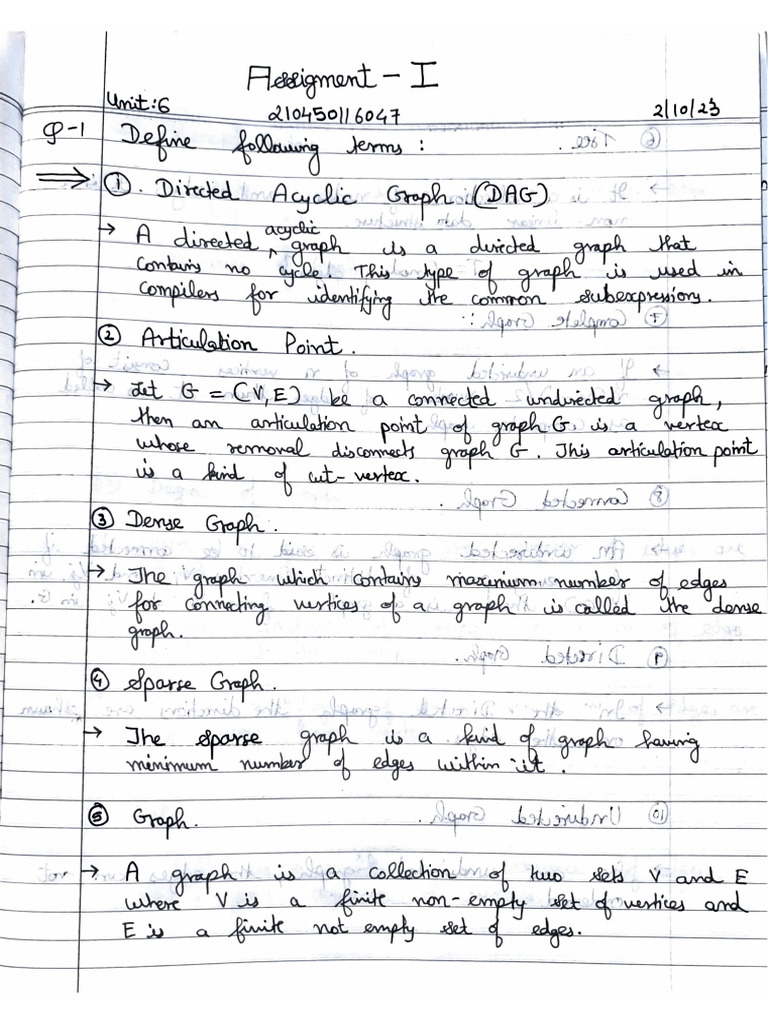 Assigment - I
Unit:6 210450116047 2/10/23
Q-1 Define following terms :
⇒ ① . Directed Acyclic Graph (DAG)
→ A directed acyclic graph is a directed graph that
contains no cycle. This type of graph is used in
compilers for identifying the common subexpressions.
② Articulation Point .
→ Let G = (V,E) be a connected undirected graph,
then an articulation point of graph G is a vertex
whose removal disconnects graph G. This articulation point
is a kind of cut-vertex.
③ Dense Graph .
→ The graph which contains maximum number of edges
for connecting vertices of a graph is called the dense
graph.
④ Sparse Graph .
→ The sparse graph is a kind of graph having
minimum number of edges within it .
⑤ Graph .
→ A graph is a collection of two sets V and E
where V is a finite non-empty set of vertices and
E is a finite not empty set of edges.